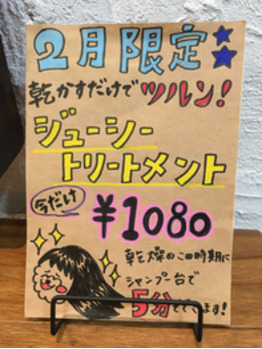 2月限定
乾かすだけでツルン!
ジューシー
トリートメント
今だけ
¥1080
乾燥のこの時期に
シャンプー台で
5分でできます!